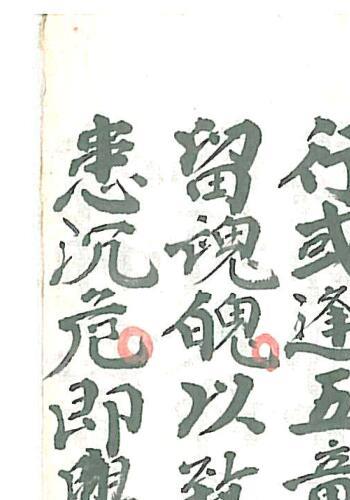 行或逢五
留魂魄以致
患沉危即